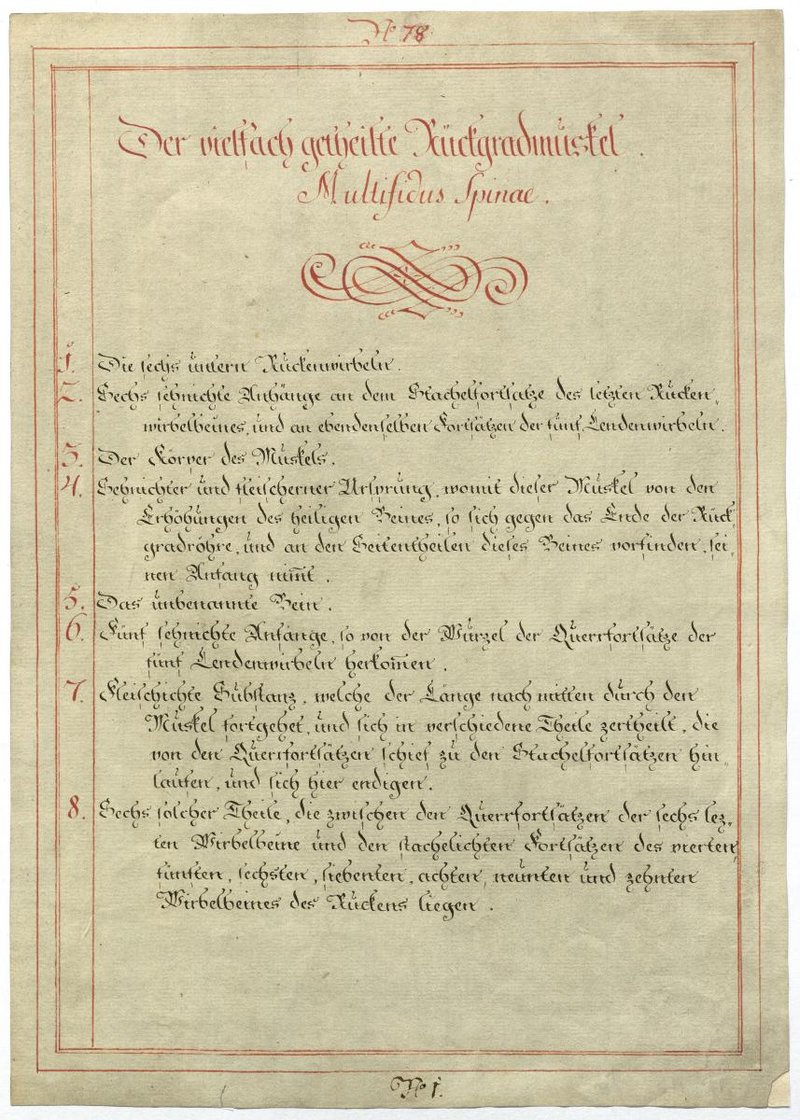 No 78
Der vielfach getheilte Rückgradmüskel.
Multifidus Spinae.
1. Die sechs üntern Rückenwirbeln.
2. Sechs sehnichte Anhänge an dem Stachelfortsatze des letzten Rücken,
wirbelbeines, ünd an ebendenselben Fortsätzen der fünf Lendenwirbeln.
3. Der Körper des Müskels.
4. Sehnichter ünd fleischerner Ursprüng, womit dieser Müskel von den
Erhöhüngen des heiligen Beines, so sich gegen das Ende der Rück,
gradröhre, ünd an den Seitentheilen dieses Beines vorfinden, sei,
nen Anfang nim̄t.
5. Das ünbenannte Bein.
6. Fünf sehnichte Anfänge, so von der Würzel der Querrfortsätze der
fünf Lendenwirbeln herkom̄en.
7. Fleischichte Substanz, welche der Länge nach mitten dürch den
Müskel fortgehet, ünd sich in verschiedene Theile zertheilt, die
von den Querrfortsätzen schief zü den Stachelfortsätzen hin,
laufen, ünd sich hier endigen.
8. Sechs solcher Theile, die zwischen den Querrfortsätzen der sechs lez,
ten Wirbelbeine ünd den stachelichten Fortsätzen des vierten,
fünften, sechsten, siebenten, achten, neünten ünd zehnten
Wirbelbeines des Rückens liegen.
No 1.